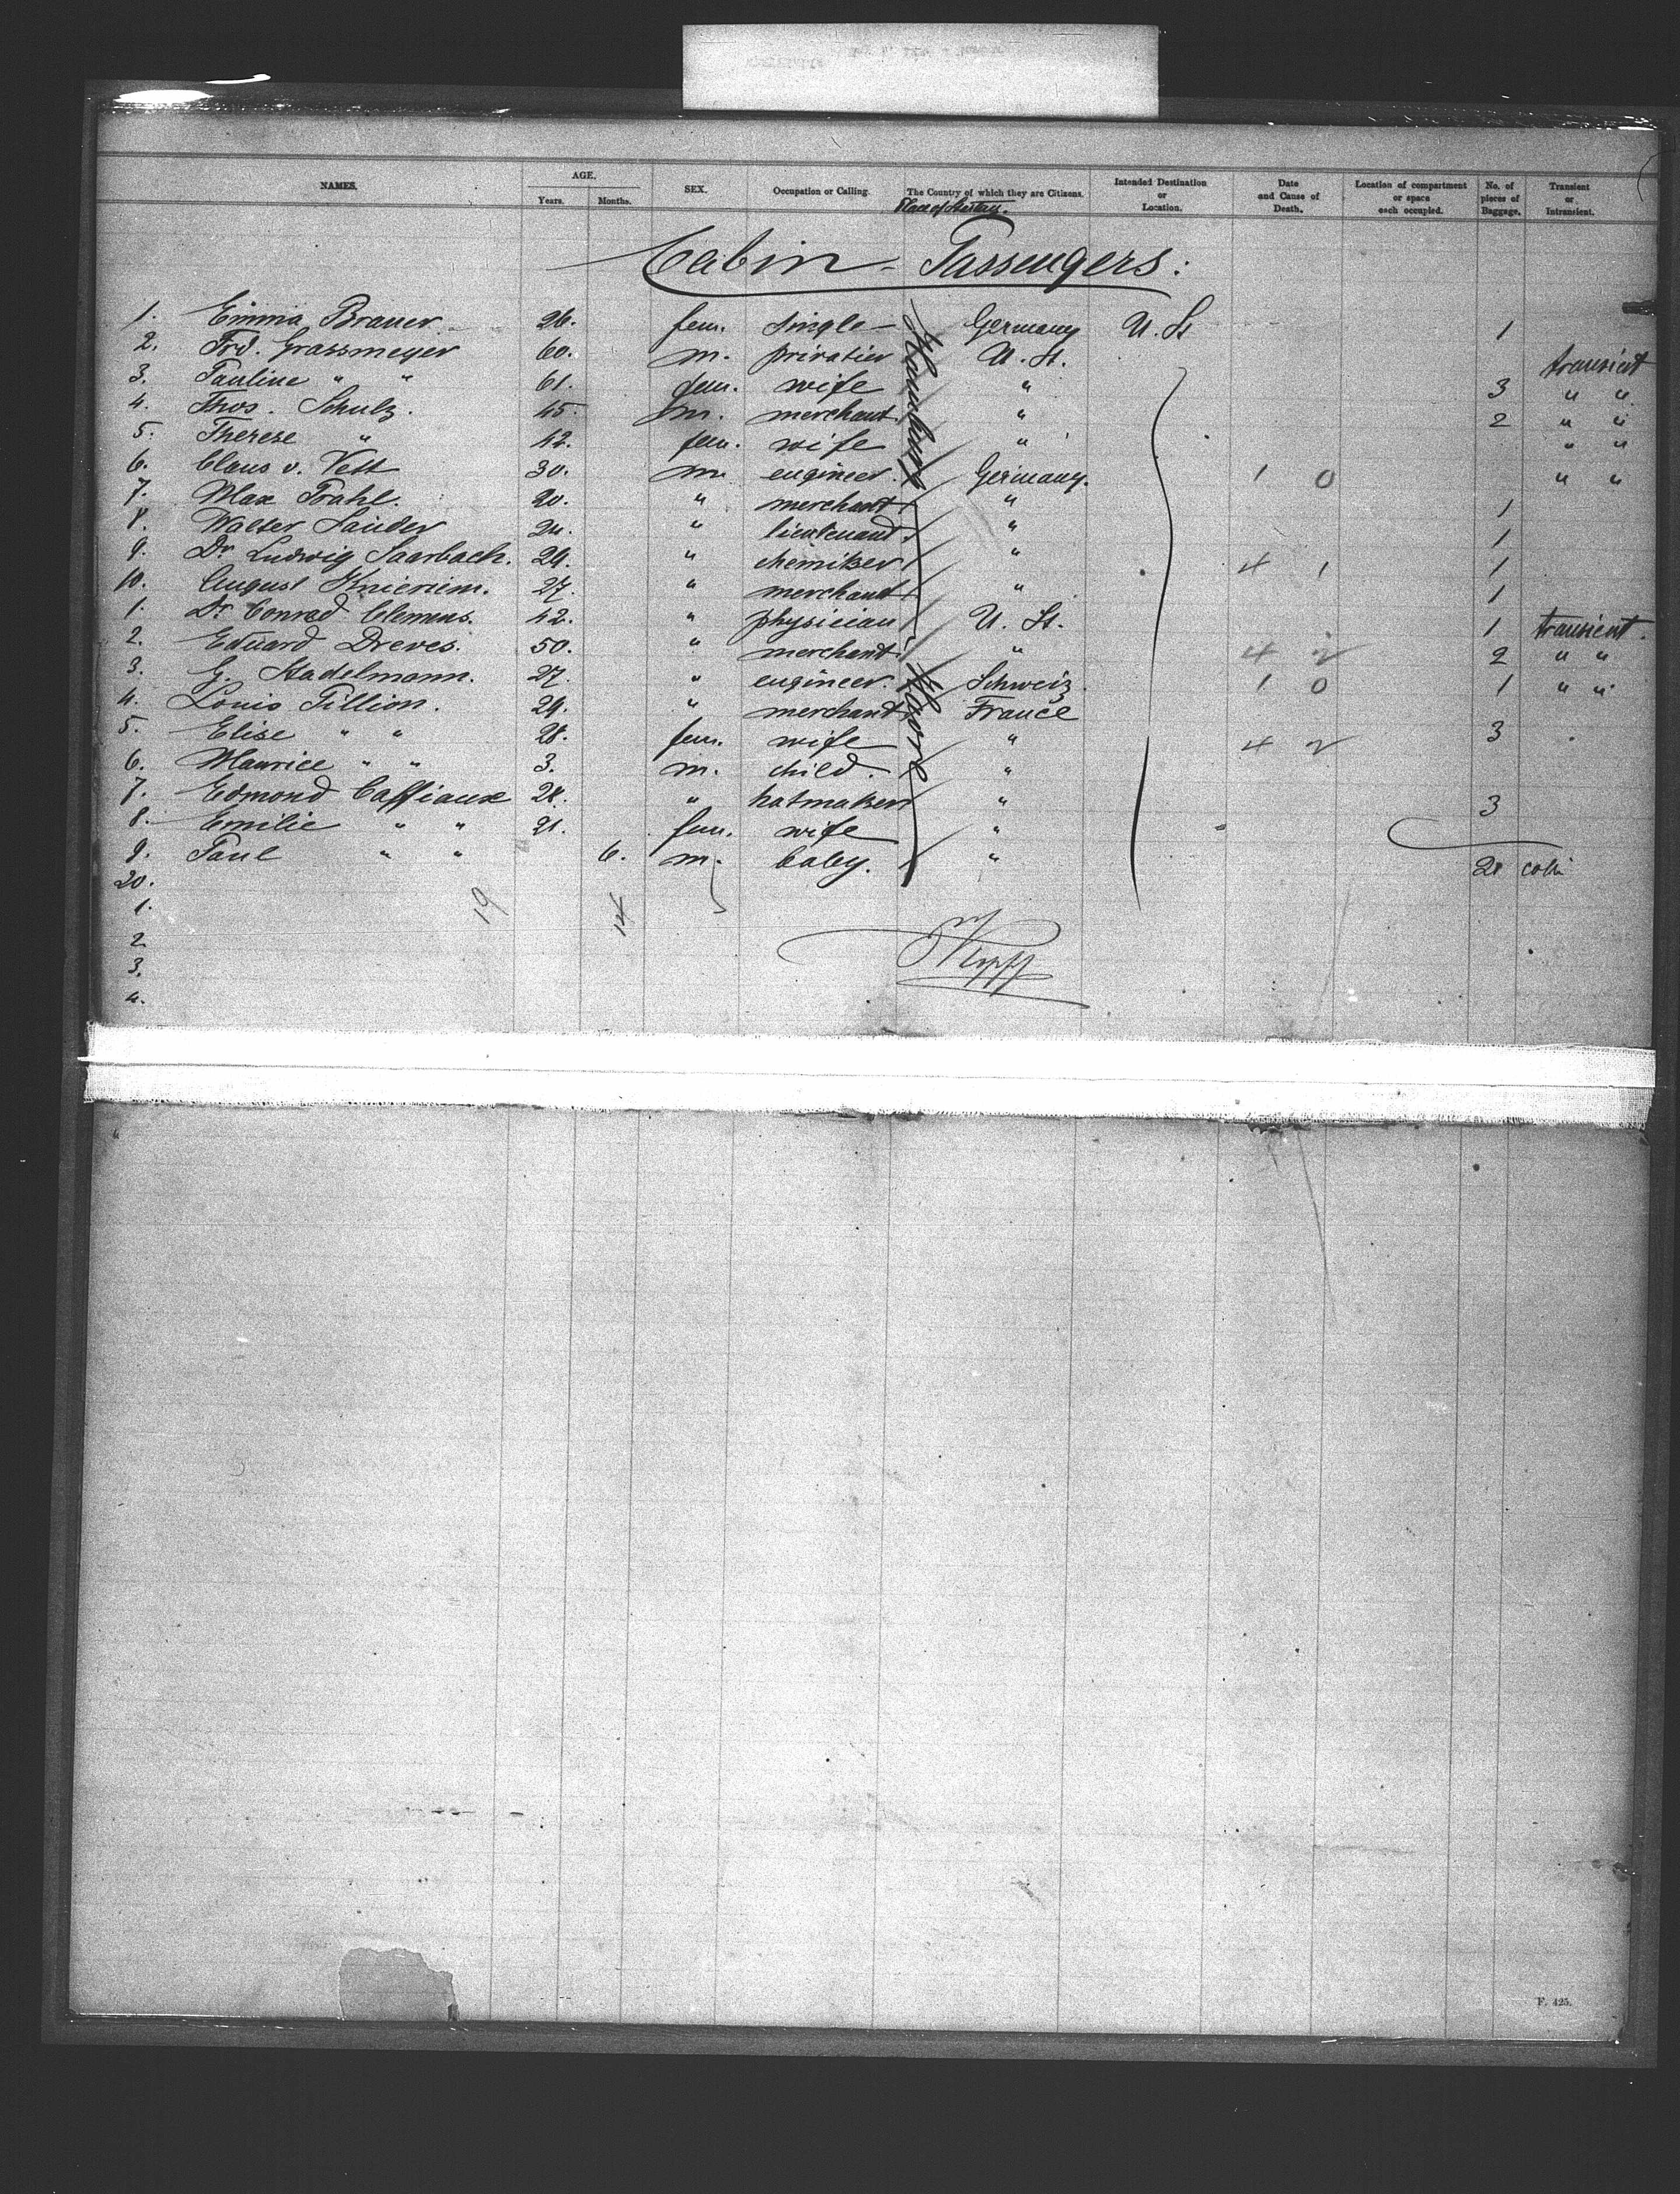 NAMES. AGE. Years. Months. SEX. Occupation or Calling. The Country of which they are Citizens. Intended Destination or Location. Date and Cause of Death. Location of compartment or space each occupied. No. of pieces of Baggage. Transient or Intransient.
Place of
Cabin - Passengers:
1. Emma Brauer. 26. fem. single - Germany U. St 1
2. Frd. Grassmeyer 60. m. privatier U. St. transient
3. Pauline " " 61. fem. wife " 3 " "
4. Thos. Schulz. 45. m. merchant. " 2 " "
5. Therese " 42. fem. wife " " "
6. Claus v. Vett 30. m. engineer. Germany. 1 0 " "
7. Max Prahl. 20. " merchant " 1
8. Walter Sander 24. " lieutenand. " 1
9. Dr Ludwig Saarbach. 29. " chemiker " 4 1 1
10. August Knieriem. 27. " merchant " 1
1. Dr. Conrad Clemens. 42. " physician U. St. 1 transient.
2. Eduard Dreves. 50. " merchant " 4 2 2 " "
3. G. Stadelmann. 27. " engineer. Schweiz. 1 0 1 " "
4. Louis Tillion. 29. " merchant France
5. Elise " " 28. fem. wife " 4 2 3
6. Maurice " " 3. m. child. "
7. Edmond Caffiaux 28. " hatmaker " 3
8. Emilie " " 21. fem. wife "
9. Paul " " 6. m. baby. " 28 colli
Hamburg
Havre
20.
1. 19 14
2
3. Kopff
4.
F. 425.